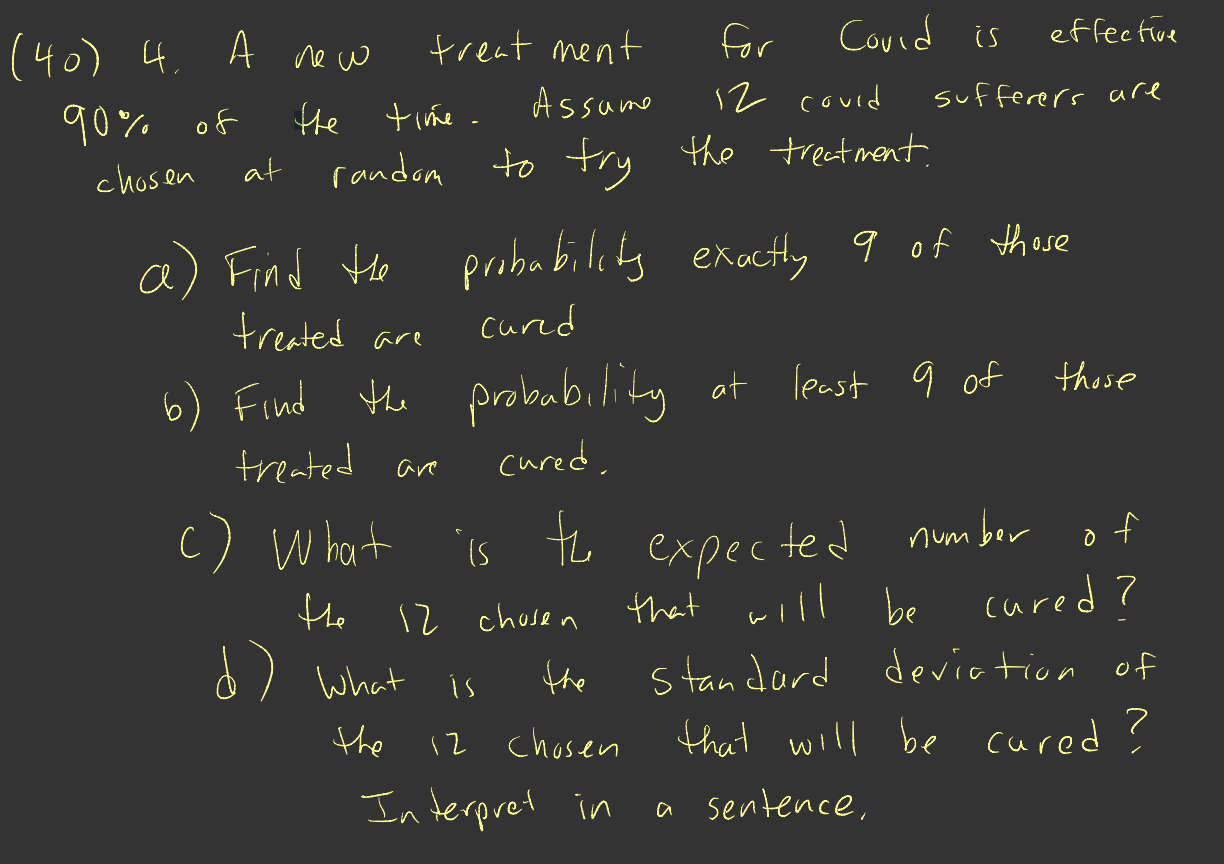 (40) 4. A new treatment for Covid is effective
90% of the time. Assume 12 covid sufferers are
chosen at random to try the treatment.
a) Find the probability exactly 9 of those
treated are cured
b) Find the probability at least 9 of those
treated are cured.
c) What is the expected number of
the 12 chosen that will be cured?
d) What is the standard deviation of
the 12 chosen that will be cured?
Interpret in a sentence.